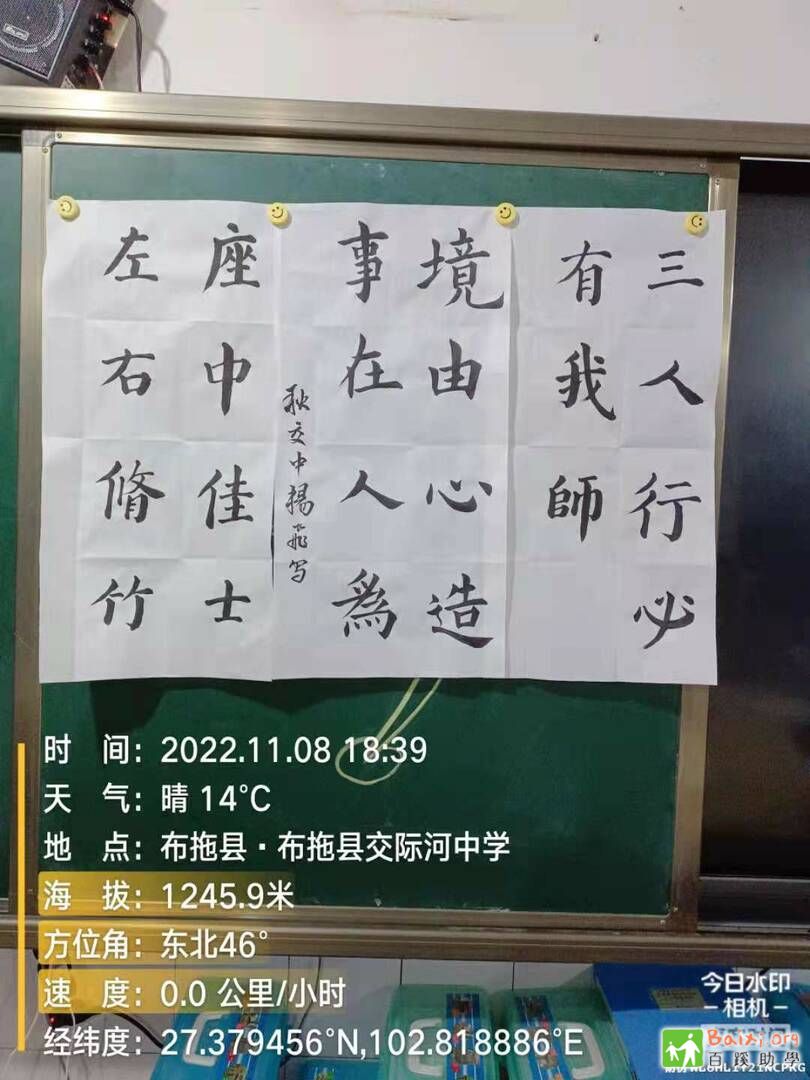 三人行必
有我師
境由心造
事在人為
秋交中揚飛写
座中佳士
左右脩竹
时 间：2022.11.08 18:39
天 气：晴 14°C
地 点：布拖县·布拖县交际河中学
海 拔：1245.9米
方位角：东北46°
速 度：0.0 公里/小时
经纬度：27.379456°N,102.818886°E
今日水印
-相机-
Baixi.Org
百蹊助學